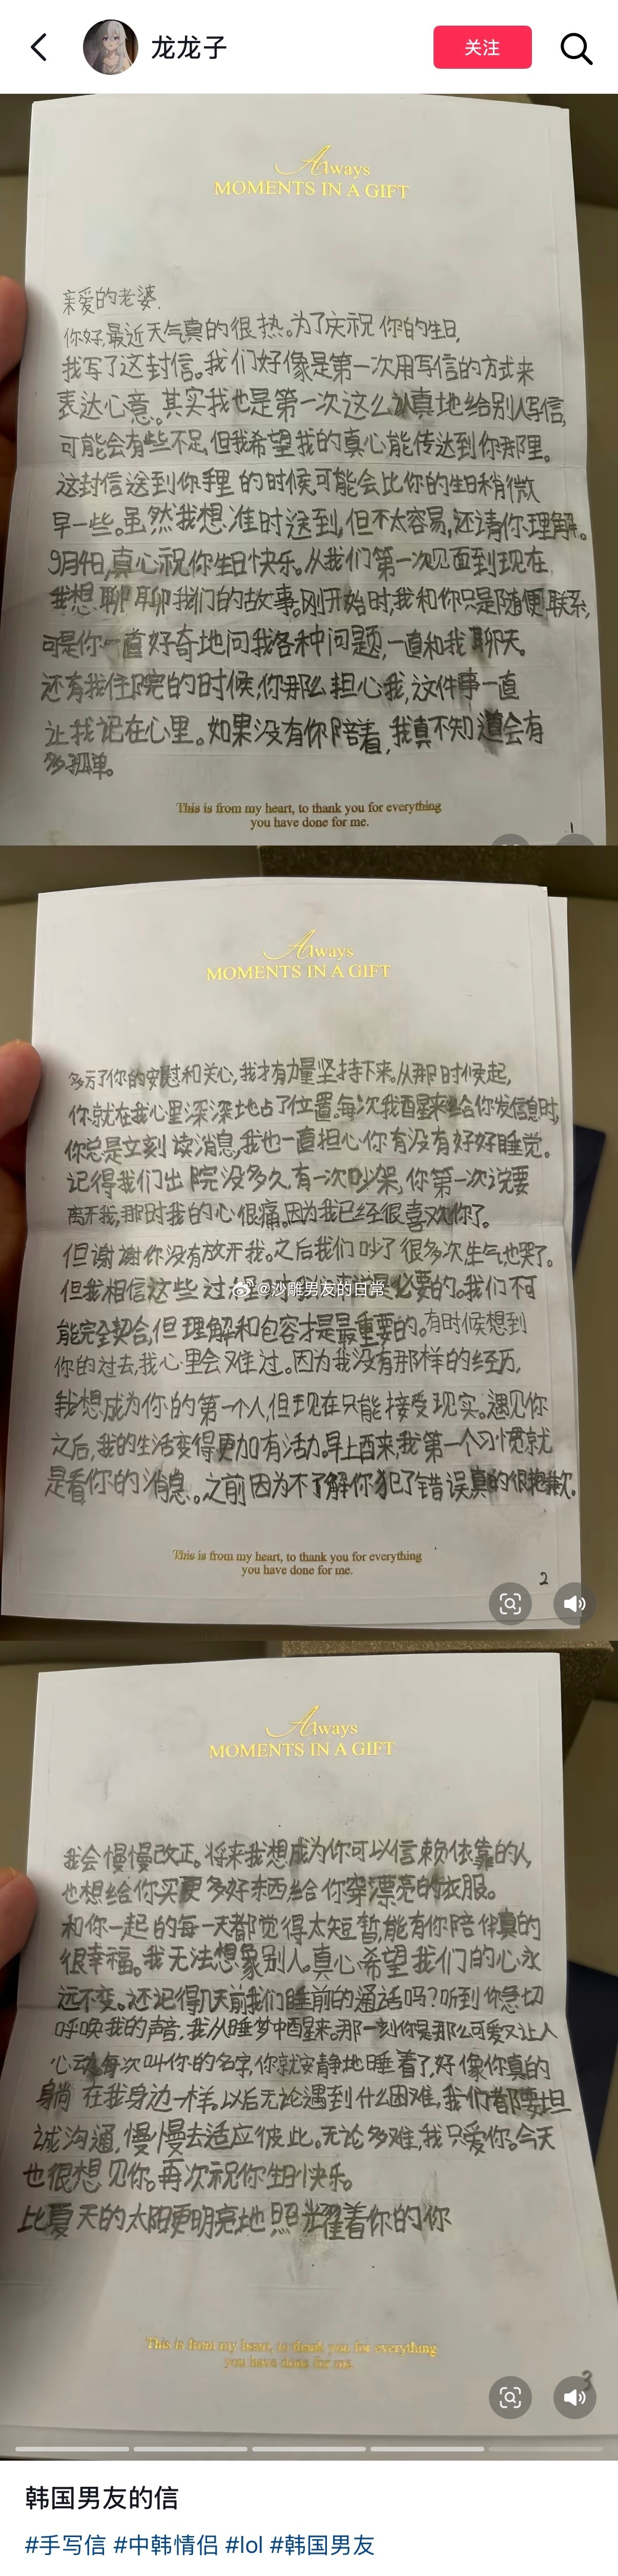 龙龙子
关注
Always
MOMENTS IN A GIFT
亲爱的老婆.
你好,最近天气真的很热。为了庆祝你的生日,
我写了这封信。我们好像是第一次用写信的方式来
表达心意。其实我也是第一次这么认真地给别人写信,
可能会有些不足,但我希望我的真心能传达到你那里。
这封信送到你手里的时候,可能会比你的生日稍微
早一些。虽然我想准时送到,但不太容易,还请你理解。
9月4日,真心祝你生日快乐。从我们第一次见面到现在,
我想聊聊我们的故事。刚开始时,我和你只是随便联系,
可是你一直好奇地问我各种问题,一直和我聊天。
还有我住院的时候,你那么担心我,这件事一直
让我记在心里。如果没有你陪着,我真不知道会有
多孤单。
This is from my heart, to thank you for everything
you have done for me.
1
Always
MOMENTS IN A GIFT
多亏了你的安慰和关心,我才有力量坚持下来。从那时候起,
你就在我心里深深地占了位置。每次我醒来给你发信息时,
你总是立刻读消息,我也一直担心你有没有好好睡觉。
记得我们出院没多久,有一次吵架,你第一次说要
离开我,那时我的心很痛。因为我已经很喜欢你了。
但谢谢你没有放开我。之后我们吵了很多次,生气也哭了。
但我相信这些过 必要的。我们不可
@沙雕男友的日常
能完全契合,但理解和包容才是最重要的。有时候想到
你的过去,我心里会难过。因为我没有那样的经历,
我想成为你的第一个人,但现在只能接受现实。遇见你
之后,我的生活变得更加有活力。早上醒来,我第一个习惯就
是看你的消息。之前因为不了解你犯了错误真的很抱歉。
This is from my heart, to thank you for everything
you have done for me.
2
Always
MOMENTS IN A GIFT
我会慢慢改正。将来我想成为你可以信赖依靠的人,
也想给你买更多好东西给你穿漂亮的衣服。
和你一起的每一天都觉得太短暂,能有你陪伴真的
很幸福。我无法想象别人。真心希望我们的心永
远不变。还记得几天前我们睡前的通话吗?听到你急切
呼唤我的声音,我从睡梦中醒来。那一刻你是那么可爱又让人
心动,每次叫你的名字,你就安静地睡着了,好像你真的
躺在我身边一样。以后无论遇到什么困难,我们都要坦
诚沟通,慢慢去适应彼此。无论多难,我只爱你。今天
也很想见你。再次祝你生日快乐。
比夏天的太阳更明亮地照耀着你的你
This is from my heart, to thank you for everything
you have done for me.
3
韩国男友的信
#手写信 #中韩情侣 #lol #韩国男友